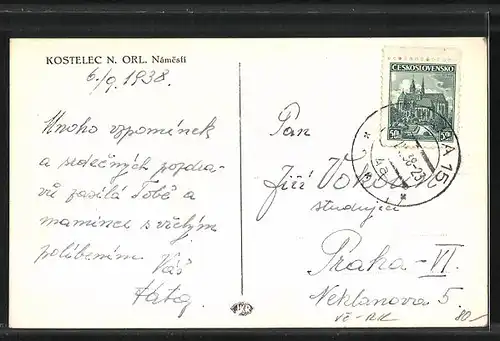 KOSTELEC N. ORL. Náměstí
6/9. 1938.
Mnoho vzpomínek
a srdečných pozdra-
vů zasílá Tobě a
mamince s vřelým
políbením Váš
ČESKOSLOVENSKO
50 50
A 15
Pan
Jiří
studující
Praha-VI.
Neklanova 5.
80-